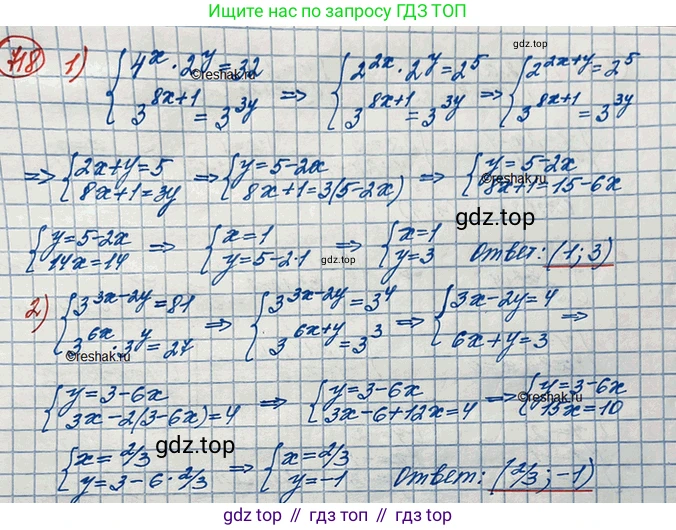 Ищите нас по запросу ГДЗ ТОП
718 1) {4^x · 2^y = 32 ; 3^(8x+1) = 3^(3y) ⇒ {2^(2x) · 2^y = 2^5 ; 3^(8x+1) = 3^(3y) ⇒ {2^(2x+y) = 2^5 ; 3^(8x+1) = 3^(3y)
gdz.top
©reshak.ru
⇒ {2x+y=5 ; 8x+1=3y ⇒ {y=5-2x ; 8x+1=3(5-2x) ⇒ {y=5-2x ; 8x+1=15-6x
©reshak.ru
gdz.top
{y=5-2x ; 14x=14 ⇒ {x=1 ; y=5-2·1 ⇒ {x=1 ; y=3 Ответ: (1; 3)
gdz.top
2) {3^(3x-2y) = 81 ; 3^(6x) · 3^y = 27 ⇒ {3^(3x-2y) = 3^4 ; 3^(6x+y) = 3^3 ⇒ {3x-2y=4 ; 6x+y=3 ⇒
©reshak.ru
{y=3-6x ; 3x-2(3-6x)=4 ⇒ {y=3-6x ; 3x-6+12x=4 ⇒ {y=3-6x ; 15x=10
©reshak.ru
gdz.top
{x=2/3 ; y=3-6·2/3 ⇒ {x=2/3 ; y=-1 Ответ: (2/3; -1)
©reshak.ru
gdz.top // гдз.топ // gdz.top // гдз.топ